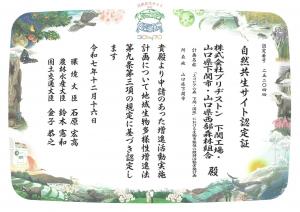 自然共生サイト認定証
株式会社ブリヂストン 下関工場・
山口県下関市・山口県西部森林組合 殿
貴殿より申請のあった増進活動実施
計画について地域生物多様性増進法
第九条第三項の規定に基づき認定し
ます
令和七年十二月十六日
環境大臣 石原宏高
農林水産大臣 鈴木憲和
国土交通大臣 金子恭之